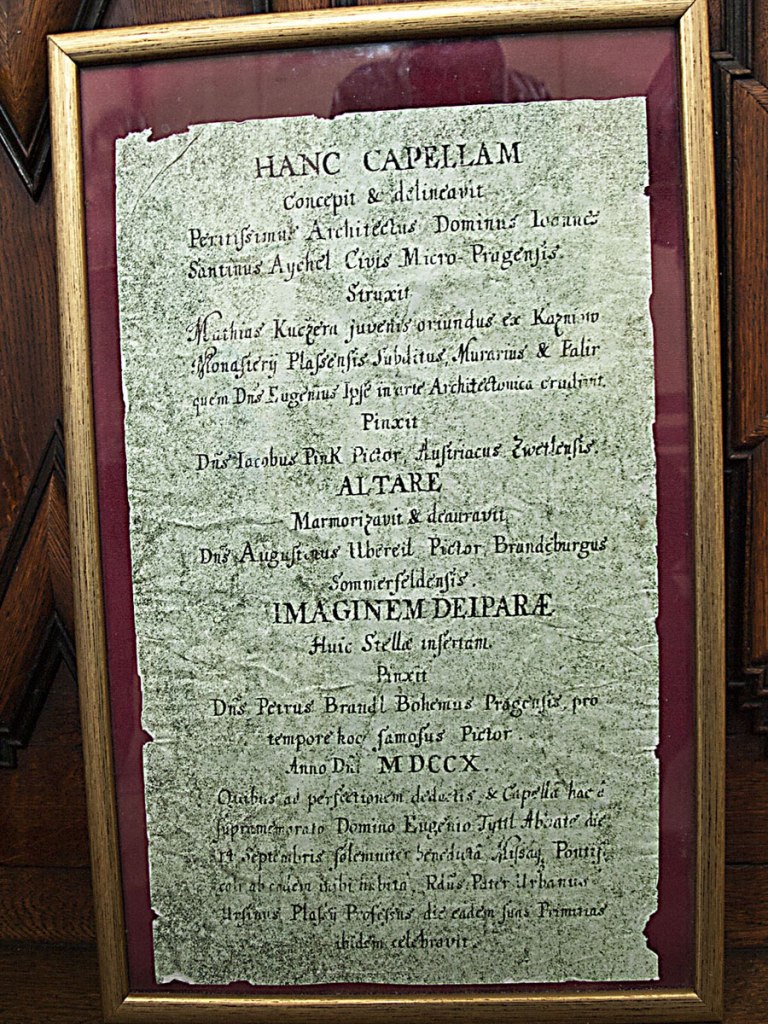 HANC CAPELLAM
Concepit & delineavit
Peritissimus Architectus Dominus Ioannes
Santinus Aychel Civis Micro-Pragensis.
Struxit
Mathias Kuczera juvenis oriundus ex Kaznow
Monasterÿ Plassensis Subditus, Murarius & Fabr
quem Dns̄ Eugenius Ipse in arte Architectonica erudivit.
Pinxit
Dns̄ Iacobus Pink Pictor, Austriacus Zwetlensis.
ALTARE
Marmorizavit & deauravit
Dns̄ Augustinus Ubereil Pictor Brandeburgus
Sommerfeldensis.
IMAGINEM DEIPARÆ
Huic Stellæ insertam
Pinxit
Dns̄ Petrus Brandl Bohemus Pragensis, pro
tempore hoc famosus Pictor.
Anno Dni MDCCX.
Quibus ad perfectionem deductis, & Capella hac à
supramemorato Domino Eugenio Tyttl Abbate die
14 Septembris solemniter benedicta, Missaq Pontifi
cali ab eodem inibi habita, Rdus̄ Pater Urbanus
Ursinus Plassÿ Professus die eadem suas Primitias
ibidem celebravit.